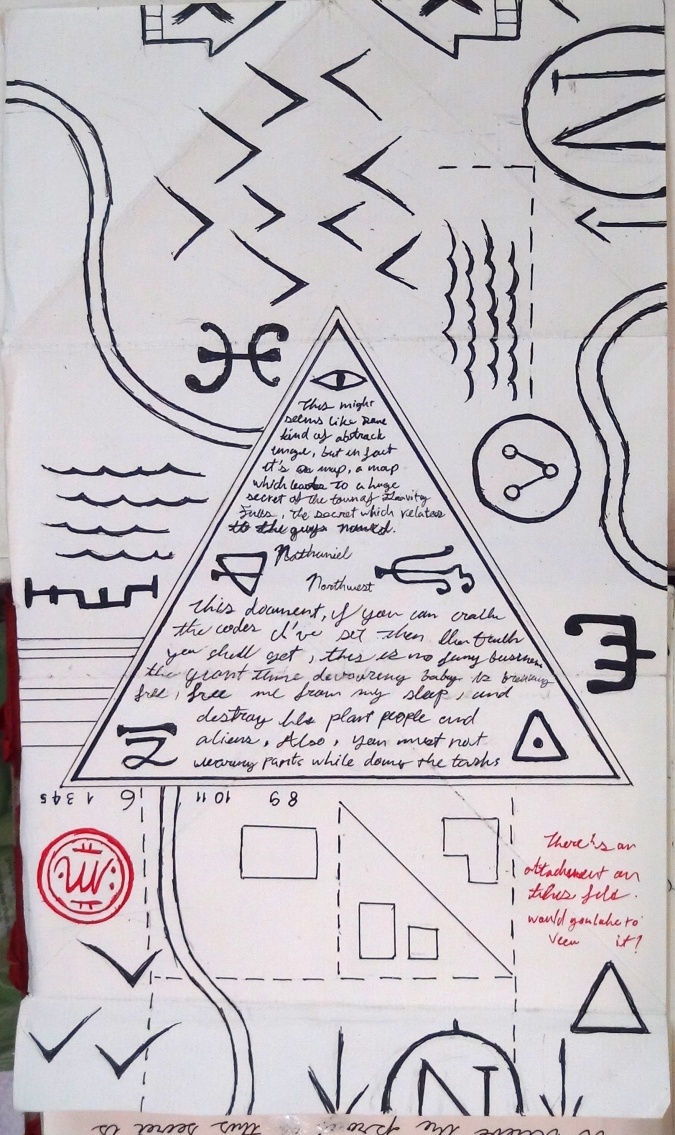 N
This might
seems like some
kind of abstrack
image, but in fact
it's a map, a map
which leads to a huge
secret of the town of Gravity
Falls, the secret which relates
to the guys named.
Nathaniel
Northwest
This document, if you can crack
the codes I've set then the truth
you shall get, this is no funy business
the giant time devouring baby is breaking
free, free me from my sleep, and
destroy his plant people and
aliens, Also, you must not
wearing pants while doing the tasks
1 3 4 5
6
10 11
8 9
There's an
attachment on
this fold.
would you like to
view it?
N
this secret is